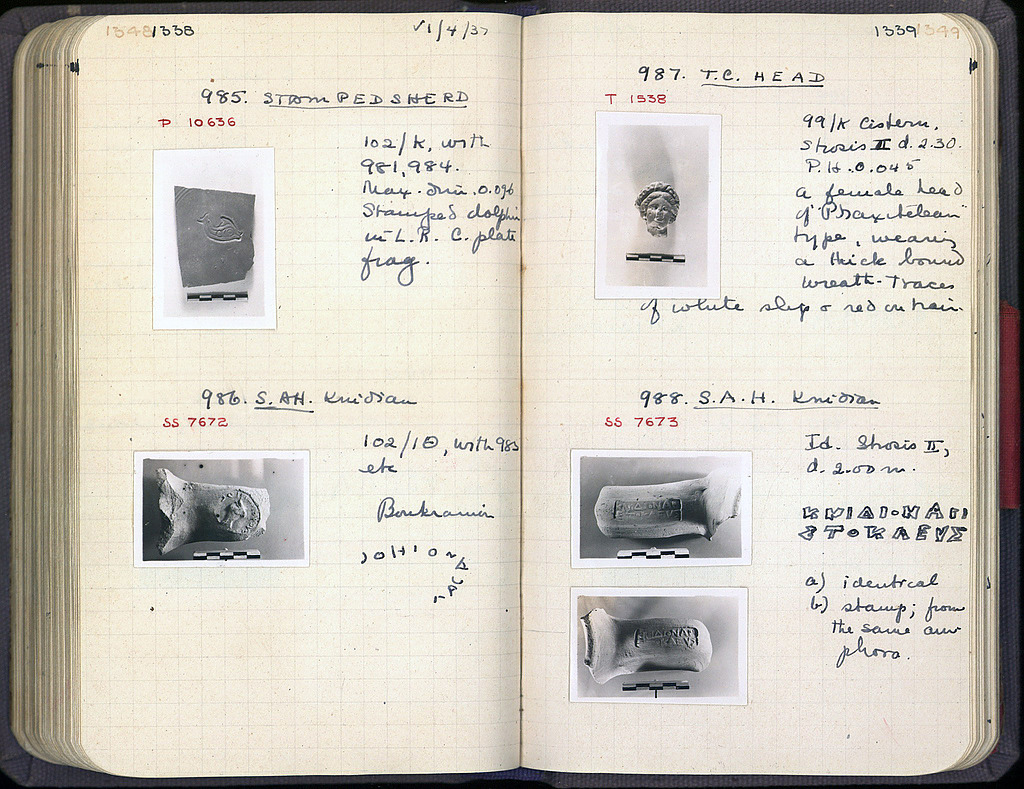 1348 1338
√1/4/37
985. STAMPED SHERD
P 10636
102/K, with
981, 984.
Max. dim. 0.096
Stamped dolphin
in L. R. C. plate
frag.
986. S. AH. Knidian
SS 7672
102/ΙΘ, with 985
etc
Boukranion
1339 1349
987. T.C. HEAD
T 1538
99/K Cistern,
Strosis II d. 2.30.
P. H. 0.045
a female head
of "Praxitelean"
type, wearing
a thick bound
wreath. Traces
of white slip & red on hair.
988. S.A.H. Knidian
SS 7673
Id. Strosis II,
d. 2.00 m.
ΚΝΙΔΙΟΝΑΠ
ΣΤΟΚΛΕΥΣ
a) identical
b) stamp; from
the same am
phora.